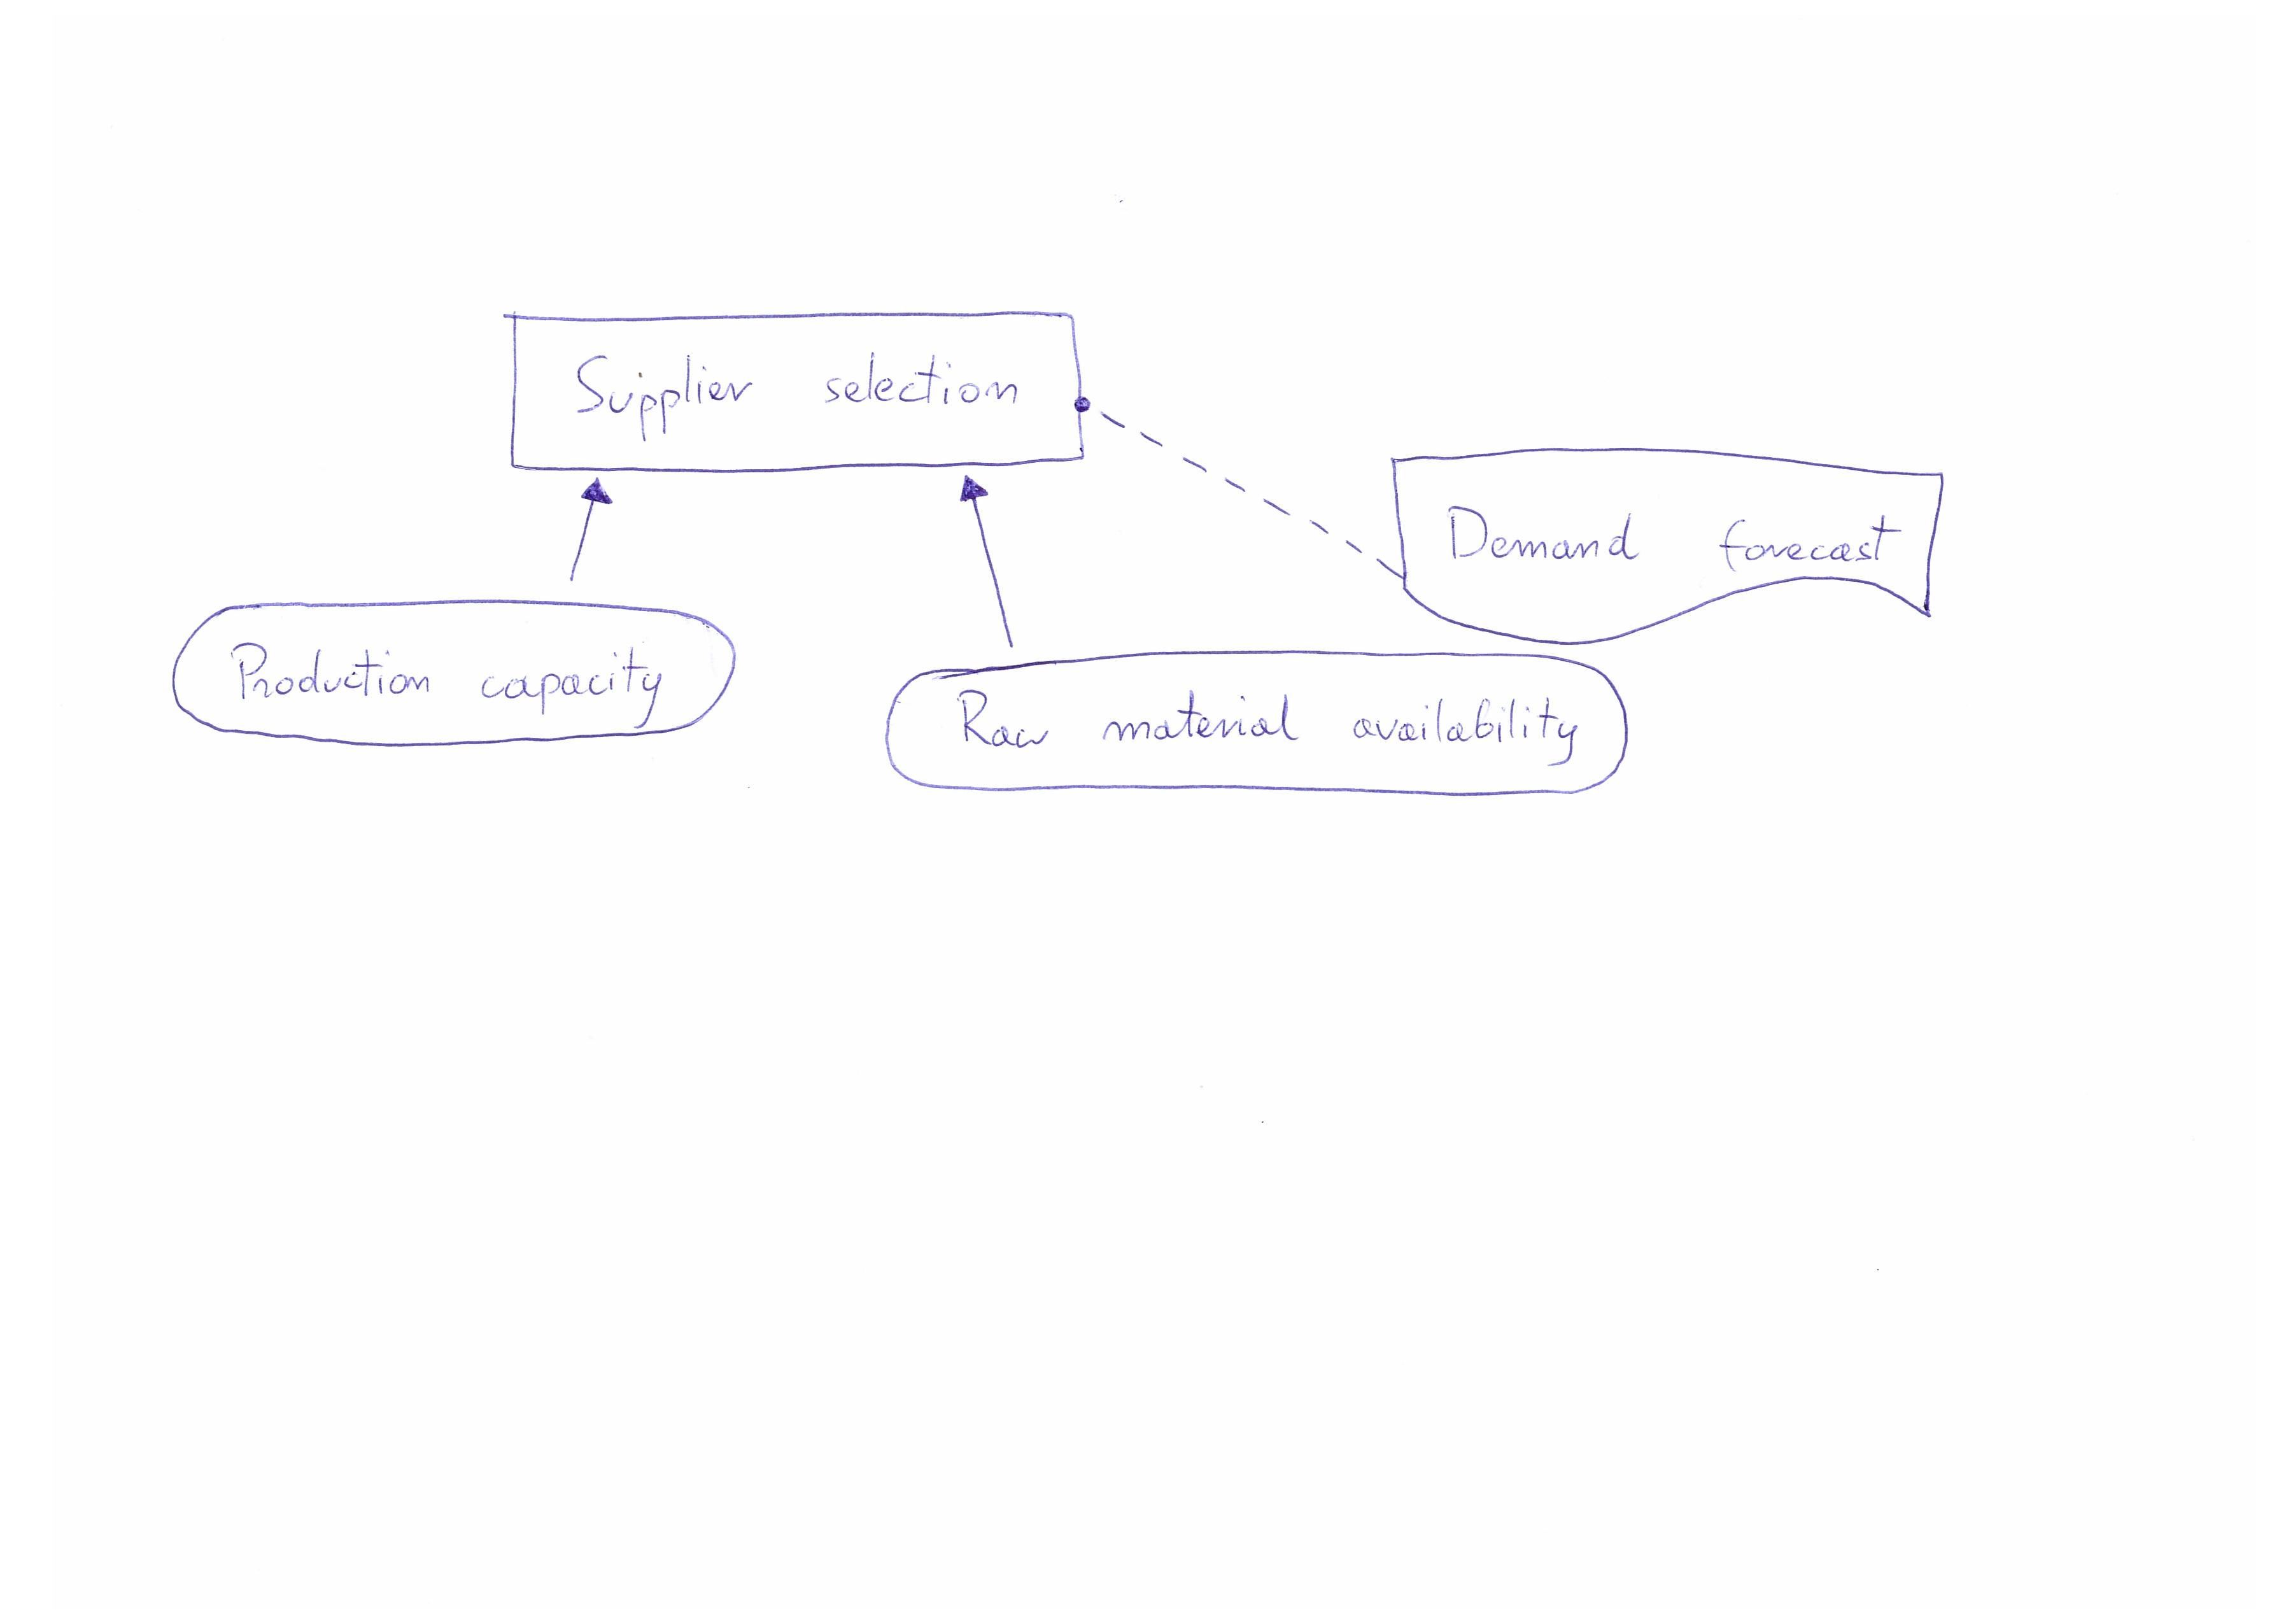 Supplier selection
Demand forecast
Production capacity
Raw material availability